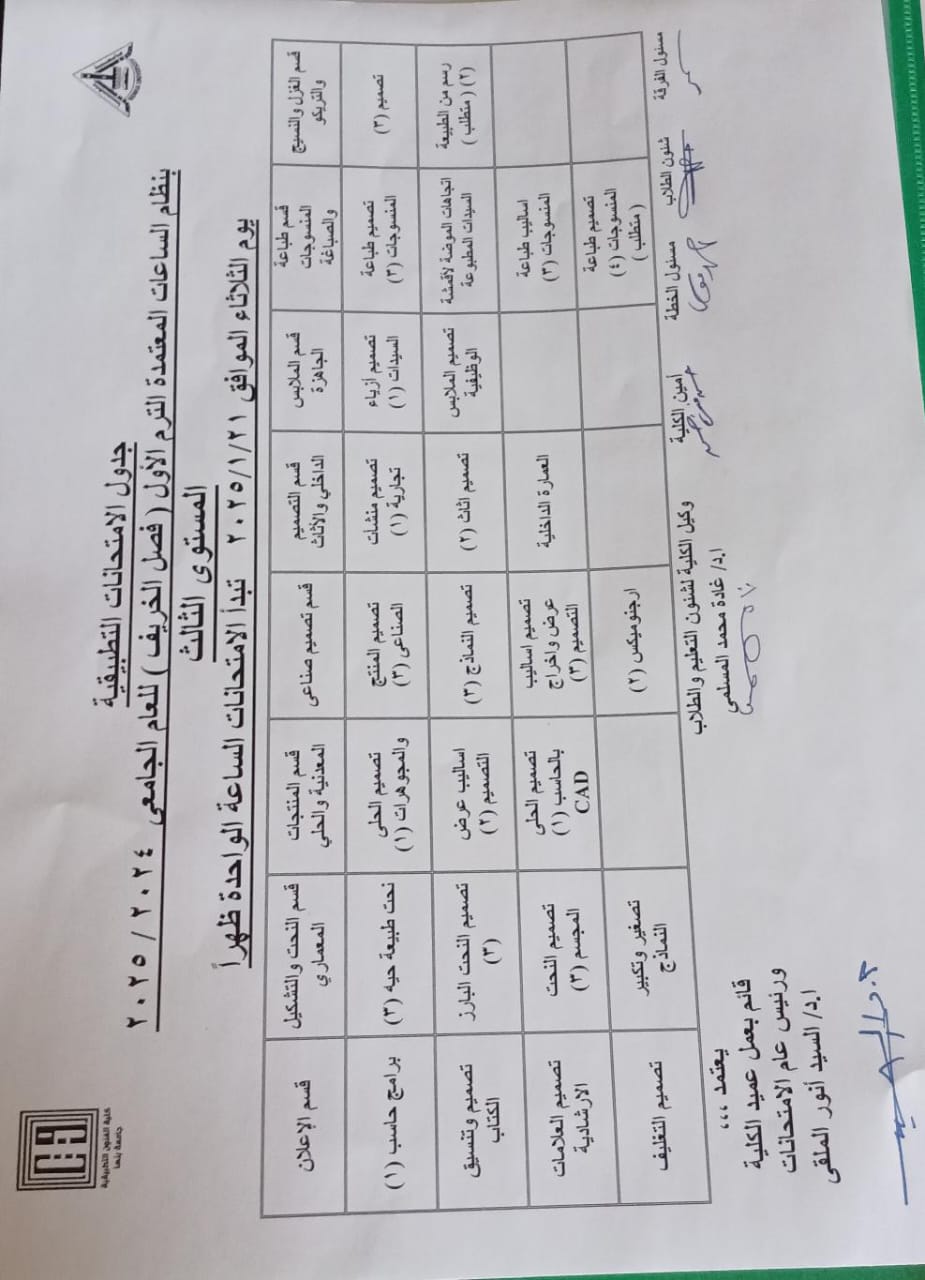 كلية الفنون التطبيقية
جامعة بنها
جدول الامتحانات التطبيقية
بنظام الساعات المعتمدة الترم الأول ( فصل الخريف ) للعام الجامعى ٢٠٢٤ / ٢٠٢٥
المستوى الثالث
يوم الثلاثاء الموافق ٢٠٢٥/١/٢١ تبدأ الامتحانات الساعة الواحدة ظهراً
قسم الغزل والنسيج
والتريكو
قسم طباعة
المنسوجات
والصباغة
قسم الملابس
الجاهزة
قسم التصميم
الداخلي والأثاث
قسم تصميم صناعى
قسم المنتجات
المعدنية والحلي
قسم النحت والتشكيل
المعماري
قسم الاعلان
تصميم (٣)
تصميم طباعة
المنسوجات (٣)
تصميم أزياء
السيدات (١)
تصميم منشات
تجارية (١)
تصميم المنتج
الصناعى (٣)
تصميم الحلى
والمجوهرات (١)
نحت طبيعة حيه (٣)
برامج حاسب (١)
رسم من الطبيعة
(٢) ( متطلب )
اتجاهات الموضة لأقمشة
السيدات المطبوعة
تصميم الملابس
الوظيفية
تصميم اثاث (٢)
تصميم النماذج (٣)
اساليب عرض
التصميم (٢)
تصميم النحت البارز
(٣)
تصميم وتنسيق
الكتاب
اساليب طباعة
المنسوجات (٣)
العمارة الداخلية
تصميم اساليب
عرض واخراج
التصميم (٣)
تصميم الحلى
بالحاسب (١)
CAD
تصميم النحت
المجسم (٣)
تصميم العلامات
الارشادية
تصميم طباعة
المنسوجات (٤)
( متطلب )
ارجنوميكس (٢)
تصغير وتكبير
النماذج
تصميم التغليف
مسئول الفرقة
شئون الطلاب
مسئول الخطة
أمين الكلية
وكيل الكلية لشئون التعليم والطلاب
ا.د/ غادة محمد المسلمى
يعتمد ،،،
قائم بعمل عميد الكلية
ورئيس عام الامتحانات
ا.د/ السيد أنور الملقى